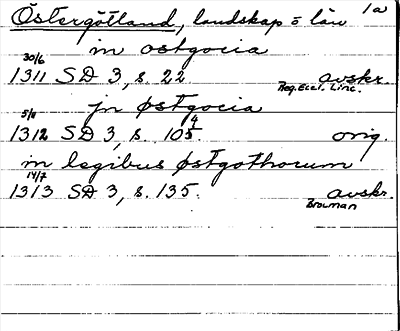 Östergötland, landskap o län 1a
in ostgocia
30/6
1311 SD 3, s. 22 avskr.
Reg. Eccl. Linc.
jn østgocia
1312 SD 3, s. 105 orig.
in legibus østgothorum
14/7
1313 SD 3, s. 135. avskr.
Broman